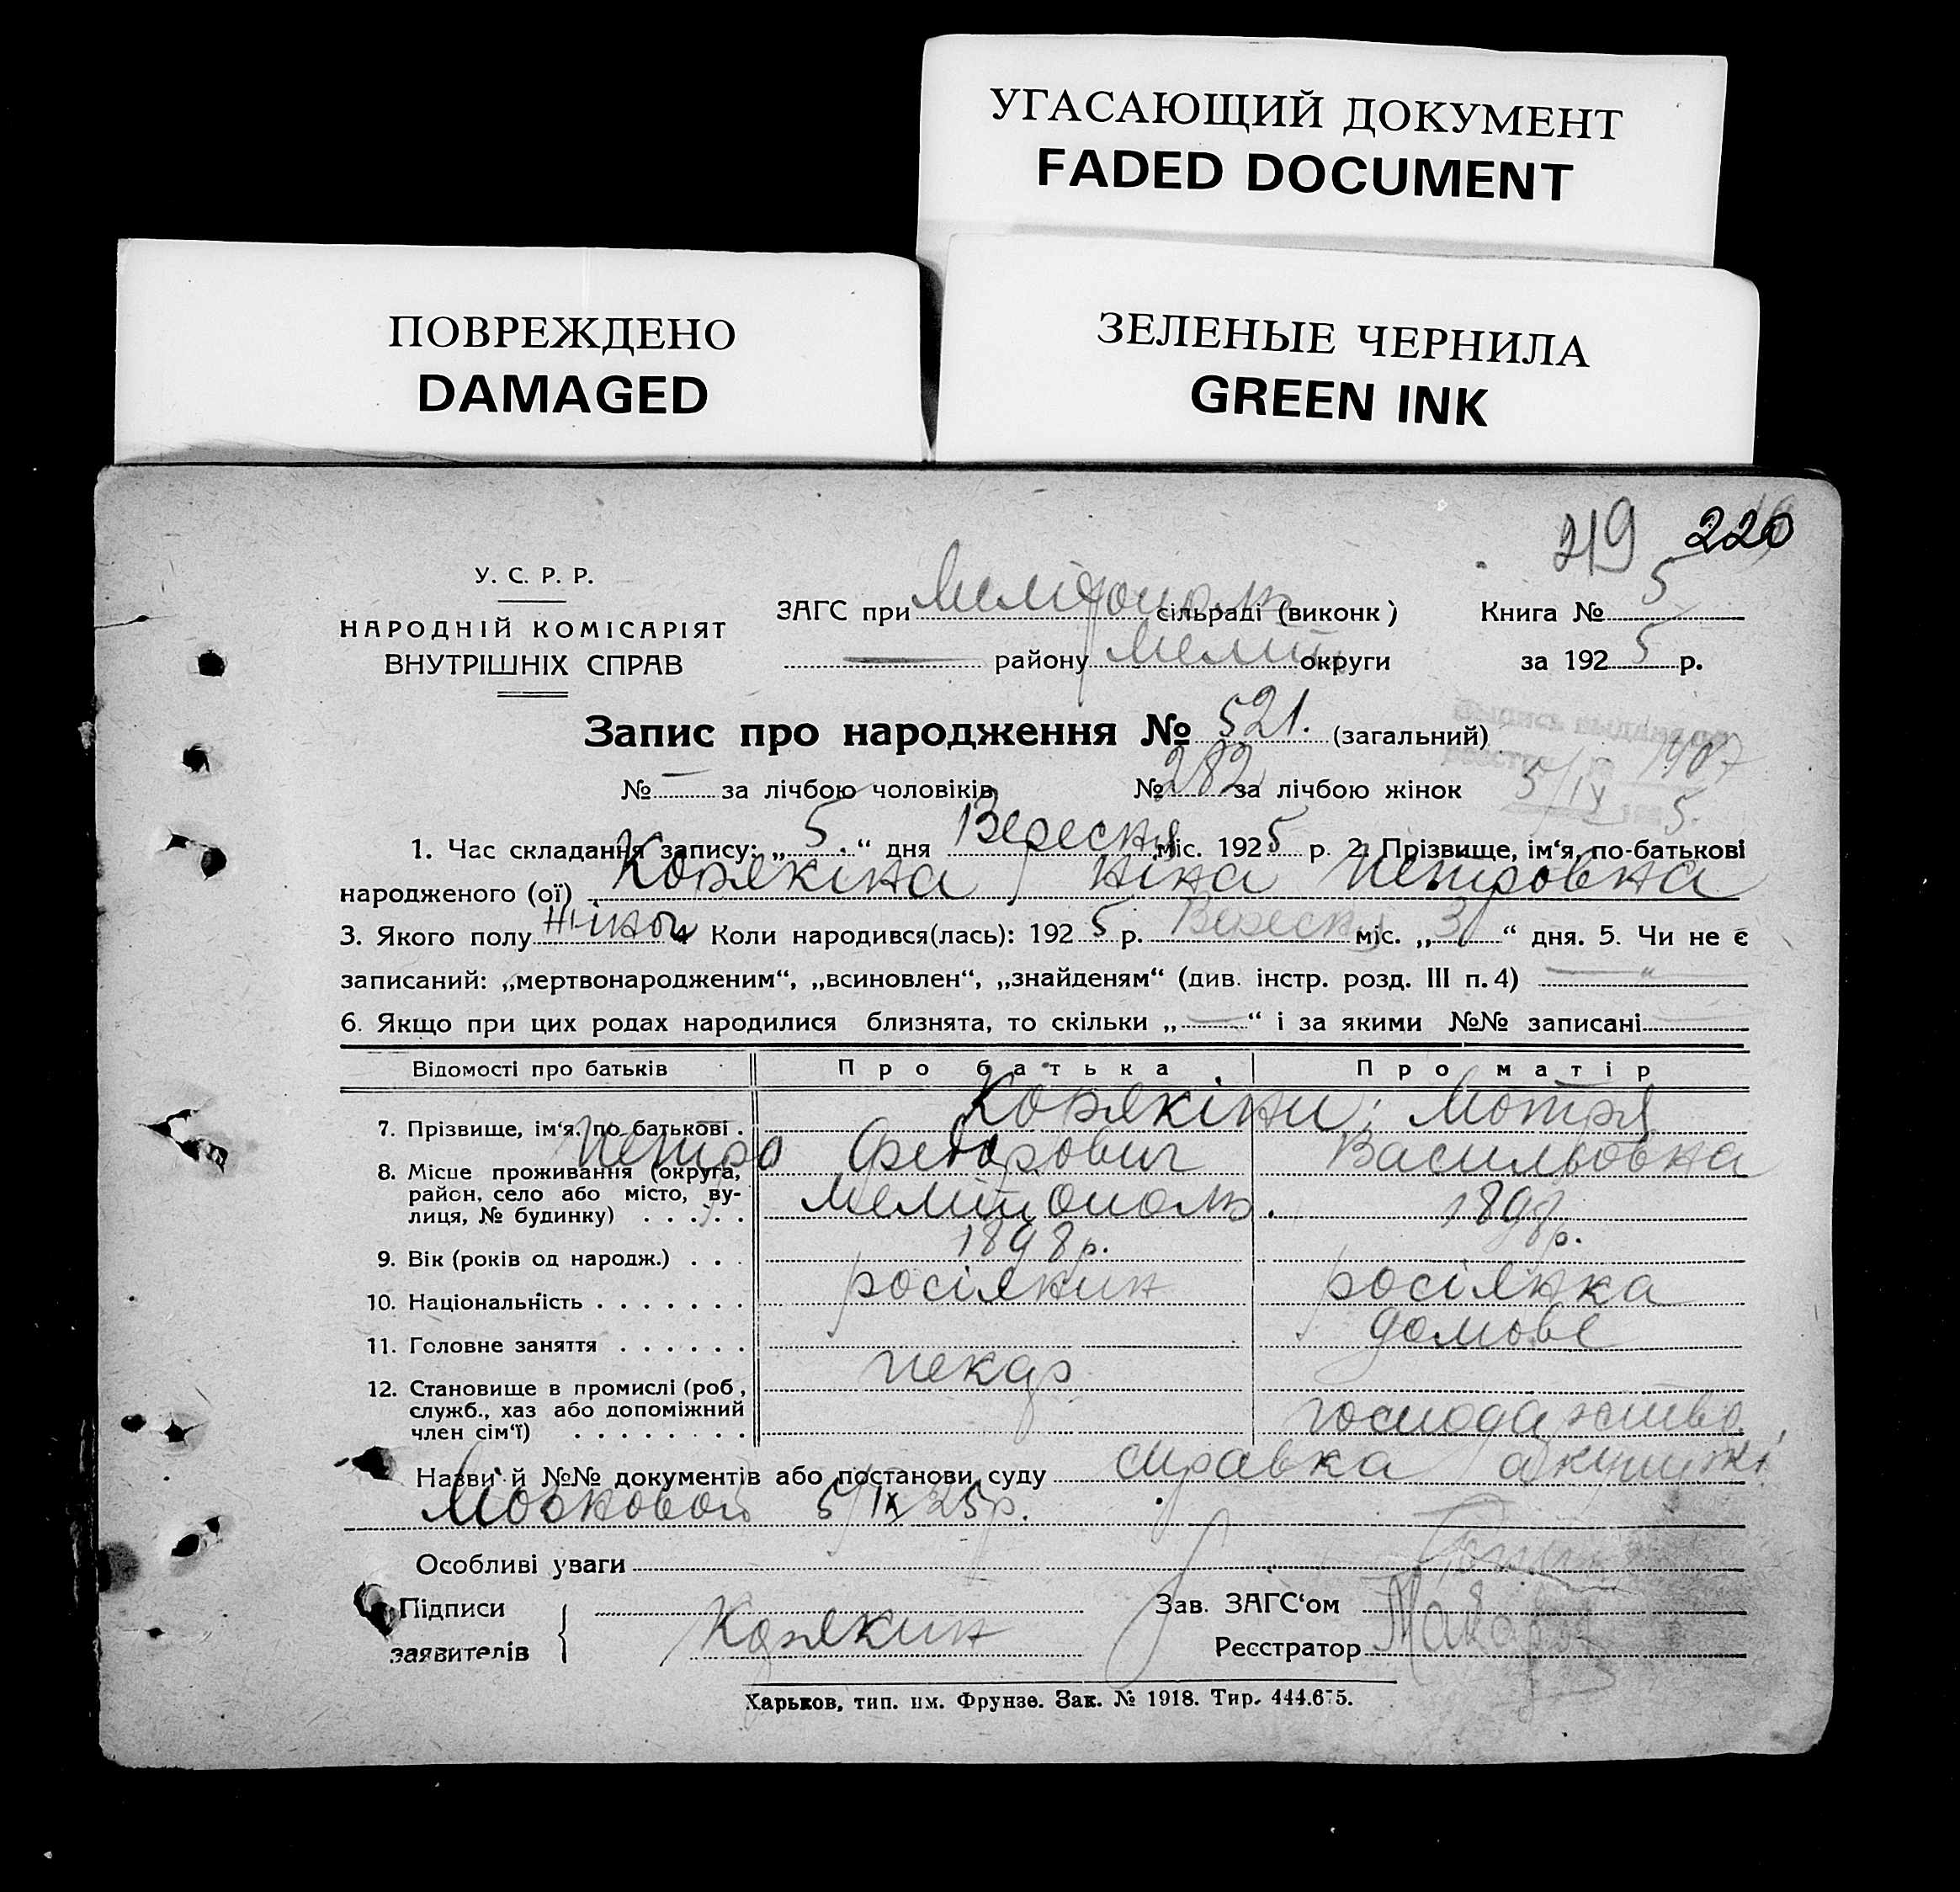 УГАСАЮЩИЙ ДОКУМЕНТ
FADED DOCUMENT
ПОВРЕЖДЕНО
DAMAGED
ЗЕЛЕНЫЕ ЧЕРНИЛА
GREEN INK
219 220
У. С. Р. Р.
НАРОДНІЙ КОМІСАРІЯТ
ВНУТРІШНІХ СПРАВ
ЗАГС при Мелітополь сільраді (виконк) Книга № 5
району Меліт округи за 1925 р.
Запис про народження № 521. (загальний)
№ — за лічбою чоловіків № 282 за лічбою жінок
Выпись выдана
1907
5/IX 5.
1. Час складання запису: „5.“ дня Вересня міс. 1925 р. 2. Прізвище, ім‘я, по-батькові
народженого (ої) Корякіна Ніна Петровна
3. Якого полу жіноч 4 Коли народився(лась): 1925 р. Вересня міс. „3“ дня. 5. Чи не є
записаний: „мертвонародженим“, „всиновлен“, „знайденям“ (див. інстр. розд. III п. 4) — „ —
6. Якщо при цих родах народилися близнята, то скільки „—“ і за якими №№ записані
Відомості про батьків Про батька Про матір
7. Прізвище, ім‘я, по батькові . Корякіни; Мотря
Петро Федорович Васильовна
8. Місце проживання (округа,
район, село або місто, ву-
лиця, № будинку) . . . . . Мелітополь.
9. Вік (років од народж.) . . . 1898 р. 1898 р.
10. Національність . . . . . . . росіянин росіянка
11. Головне заняття . . . . . . пекар домове
12. Становище в промислі (роб,
служб., хаз або допоміжний
член сім‘ї) . . . . . . . . господарство
Назви й №№ документів або постанови суду справка акушерки
5/IX 25 р.
Особливі уваги
Підписи
заявителів
Корякин
Зав. ЗАГС‘ом
Реєстратор
Харьков, тип. им. Фрунзе. Зак. № 1918. Тир. 444.675.